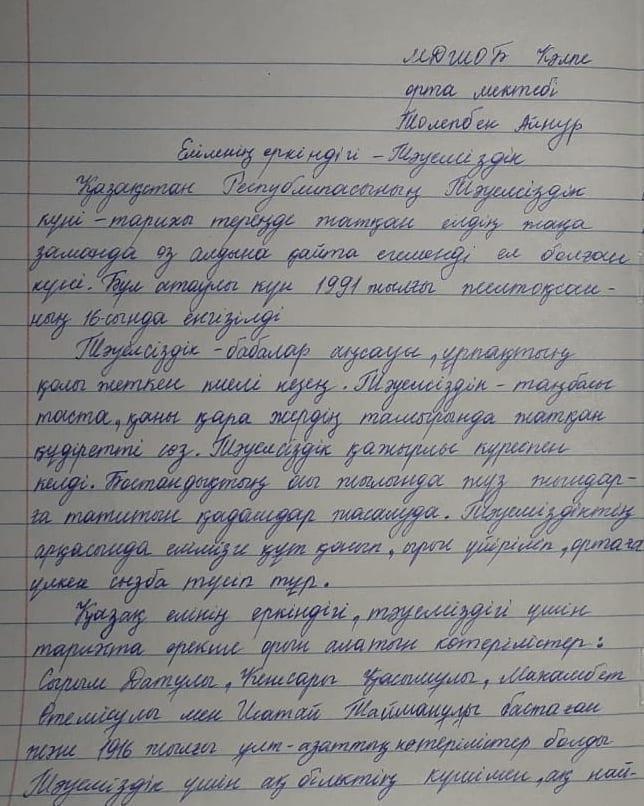 МДШОБ Кәмпе
орта мектебі
Төлепбек Айнур
Елімнің еркіндігі - Тәуелсіздік
Қазақстан Республикасының Тәуелсіздік
күні - тарихы тереңде жатқан елдің жаңа
заманда өз алдына қайта егеменді ел болған
күні. Бұл атаулы күн 1991 жылғы желтоқсан-
ның 16-сында енгізілді
Тәуелсіздік - бабалар аңсауы, ұрпақтың
қолы жеткен киелі кезең. Тәуелсіздік - таңбалы
таста, қаны қара жердің тамырында жатқан
құдіретті сөз. Тәуелсіздік қажырлы күреспен
келді. Бостандықтың осы жылында жүз жылдар-
ға татитын қадамдар жасалуда. Тәуелсіздіктің
арқасында елімізге құт қонып, ырыс үйіріліп, ортаға
үлкен сызба түсіп тұр.
Қазақ елінің еркіндігі, тәуелсіздігі үшін
тарихта ерекше орын алатын көтерілістер:
Сырым Датұлы, Кенесары Қасымұлы, Махамбет
Өтемісұлы мен Исатай Тайманұлы бастаған
және 1916 жылғы ұлт-азаттық көтерілістер болды
Тәуелсіздік үшін ақ білектің күшімен, ақ най-